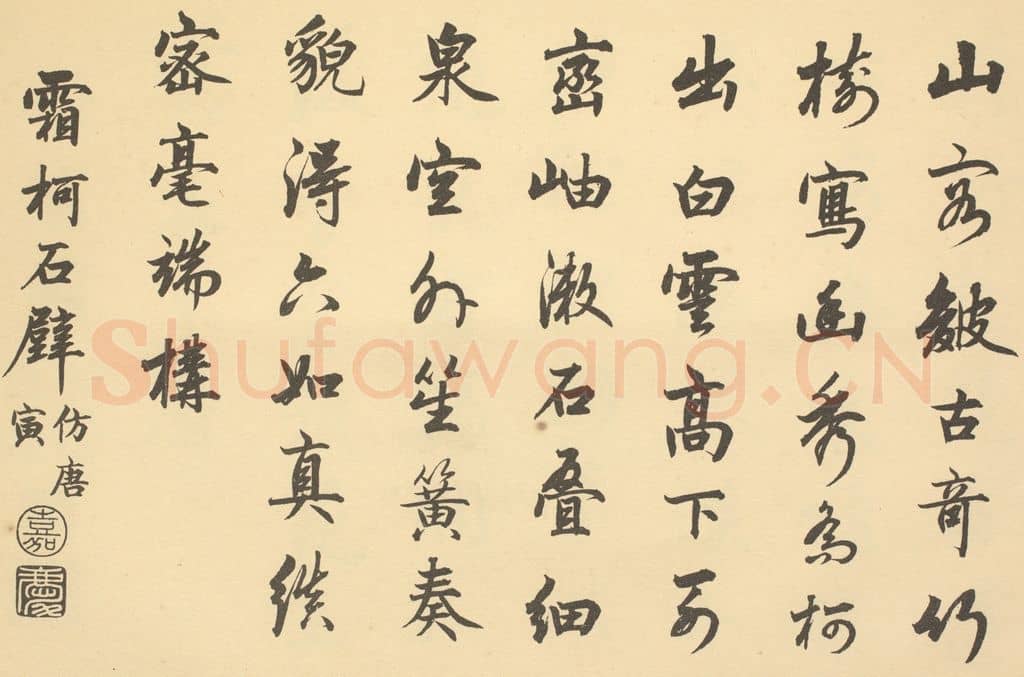 山容皴古奇竹
樹寫幽秀喬柯
出白雲高下列
巒岫激石疊細
泉空外笙簧奏
貌得六如真縱
密毫端構
霜柯石壁
仿唐
寅
嘉
慶
Shufawang.CN